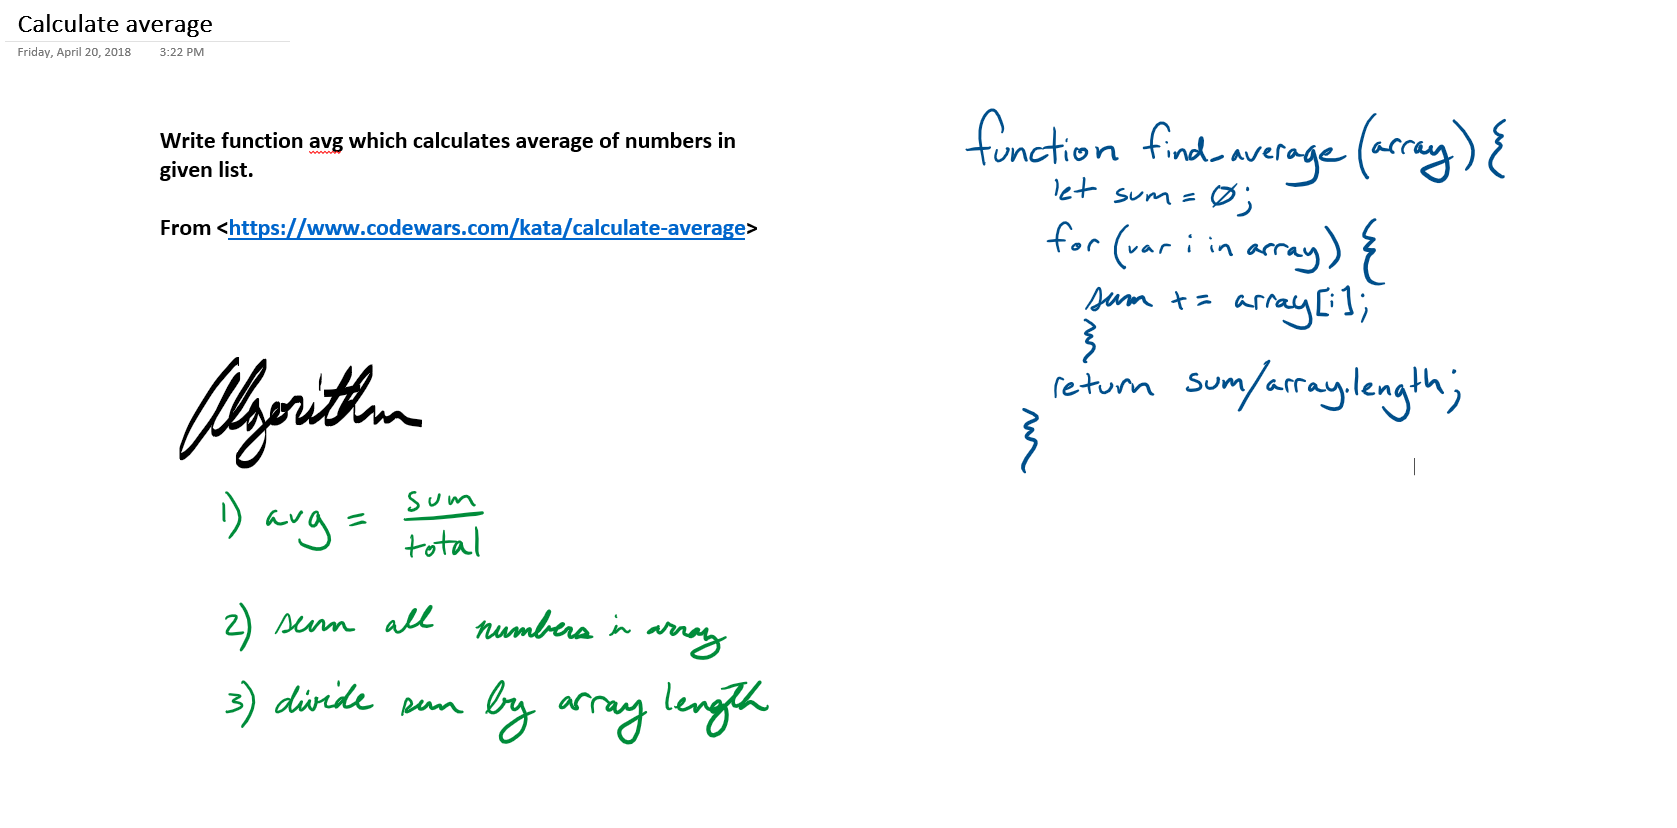 Calculate average
Friday, April 20, 2018 3:22 PM
Write function avg which calculates average of numbers in
given list.
From <https://www.codewars.com/kata/calculate-average>
Algorithm
1) avg = sum
total
2) sum all numbers in array
3) divide sum by array length
function find_average (array) {
let sum = 0;
for (var i in array) {
sum += array[i];
}
return sum/array.length;
}